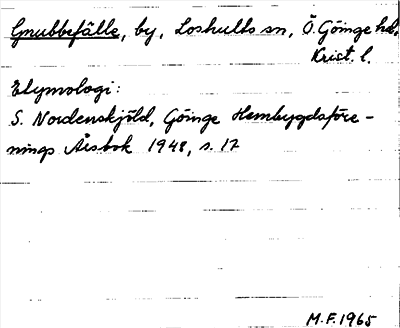 Gnubbefälle, by, Loshults sn, Ö. Göinge hd,
Krist. l.
Etymologi:
S. Nordenskjöld, Göinge Hembygdsföre-
nings Årsbok 1948, s. 17
M.F. 1965